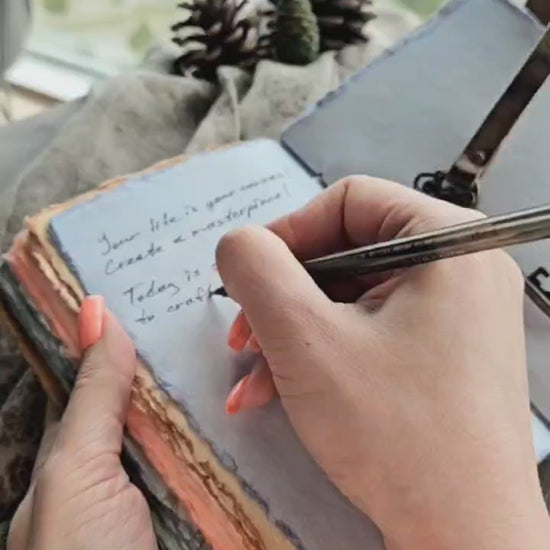 Your life is your canvas,
Create a masterpiece!
Today is
to craft